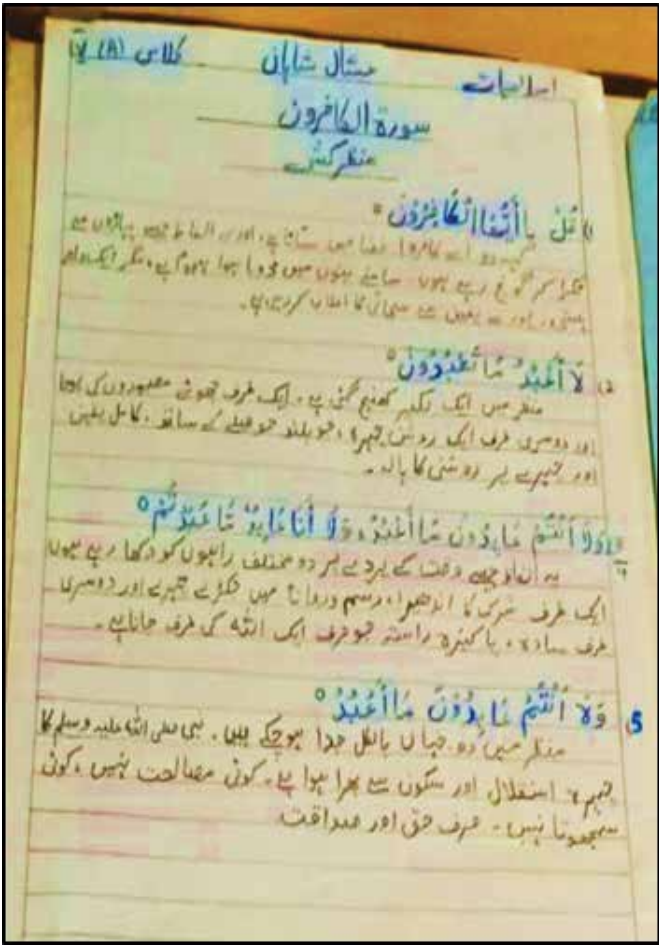 اسلامیات مشال شایان کلاس (A) V
سورۃ الکافرون
منظر کشی
1) قُلْ یَا أَیُّھَا الْکَافِرُوْنَ ○
کہہ دو اے کافرو! فضا میں سناٹا ہے، اور یہ الفاظ جیسے پہاڑوں سے
ٹکرا کر گونج رہے ہوں۔ سامنے بتوں میں ڈوبا ہوا ہجوم ہے، مگر ایک آواز
یقین سے سچائی کا اعلان کر رہی ہے۔
2) لَا أَعْبُدُ مَا تَعْبُدُوْنَ ○
منظر میں ایک لکیر کھنچ گئی ہے۔ ایک طرف جھوٹے معبودوں کی پوجا
اور دوسری طرف ایک روشن چہرہ، جو بلند حوصلے کے ساتھ، کامل یقین
اور چہرے پر روشنی کا ہالہ۔
وَلَا أَنْتُمْ عَابِدُوْنَ مَا أَعْبُدُ، وَلَا أَنَا عَابِدٌ مَّا عَبَدْتُّمْ ○
یہ الفاظ جیسے وقت کے پردے پر دو مختلف راہوں کو دکھا رہے ہوں
ایک طرف شرک کا اندھیرا، رسم و رواج میں جکڑے چہرے اور دوسری
طرف سادہ، پاکیزہ راستہ جو صرف ایک اللہ کی طرف جاتا ہے۔
5) وَلَا أَنْتُمْ عَابِدُوْنَ مَا أَعْبُدُ ○
منظر میں دو جہاں بالکل جدا ہوچکے ہیں۔ نبی صلی اللہ علیہ وسلم کا
چہرہ استقلال اور سکون سے بھرا ہوا ہے۔ کوئی مصالحت نہیں، کوئی
سمجھوتا نہیں۔ صرف حق اور صداقت